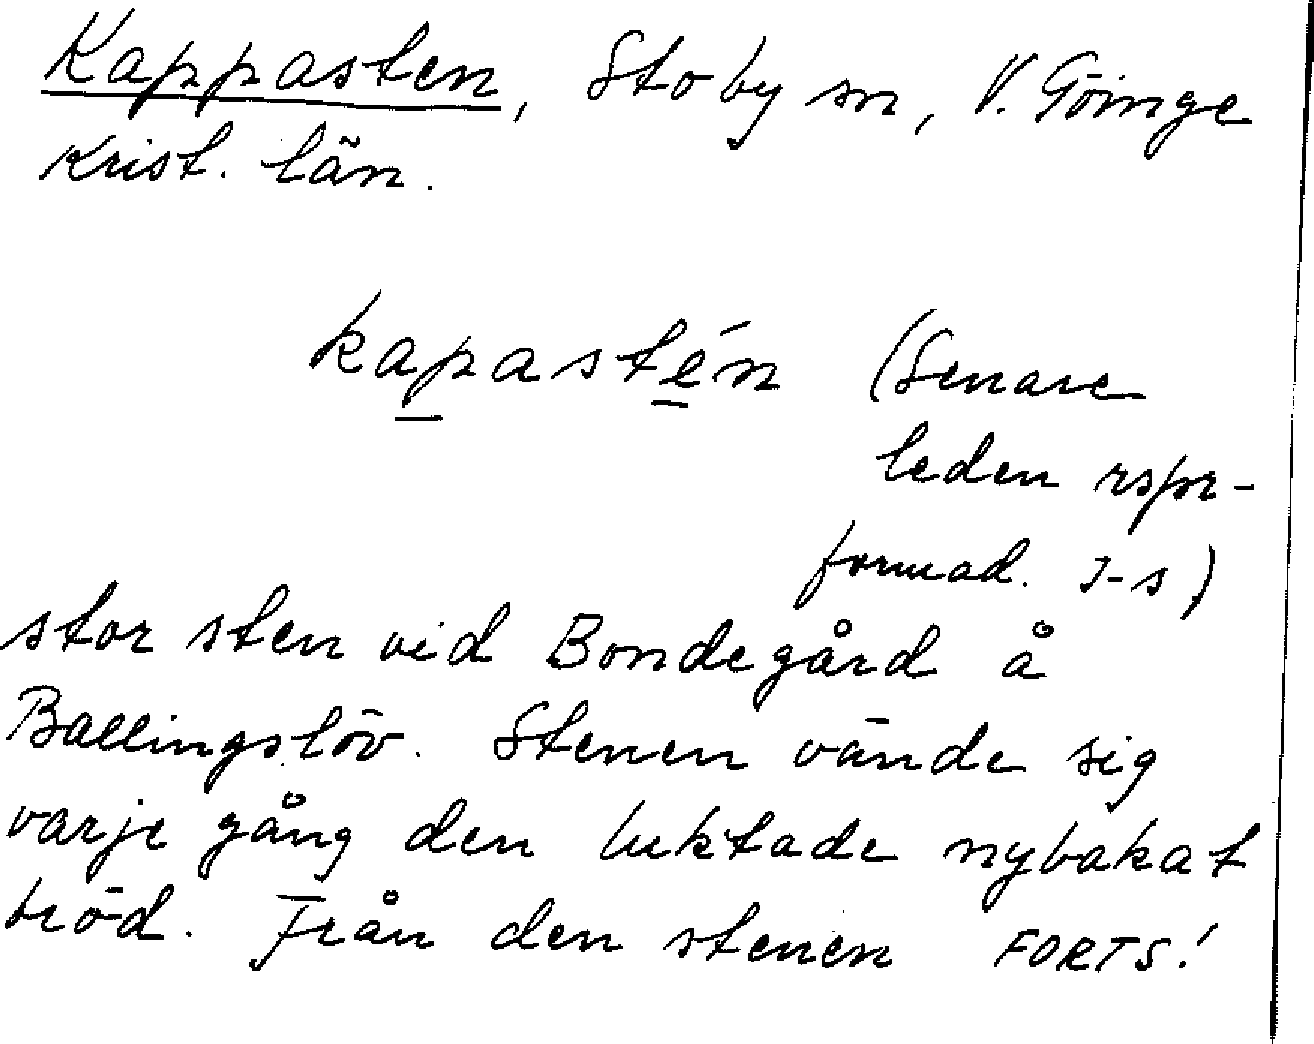 Kappasten, Stoby sn, V. Göinge
Krist. län.
kapastén (Senare
leden rspr-
formad. I-s)
stor sten vid Bondegård å
Ballingslöv. Stenen vände sig
varje gång den luktade nybakat
bröd. Från den stenen FORTS!